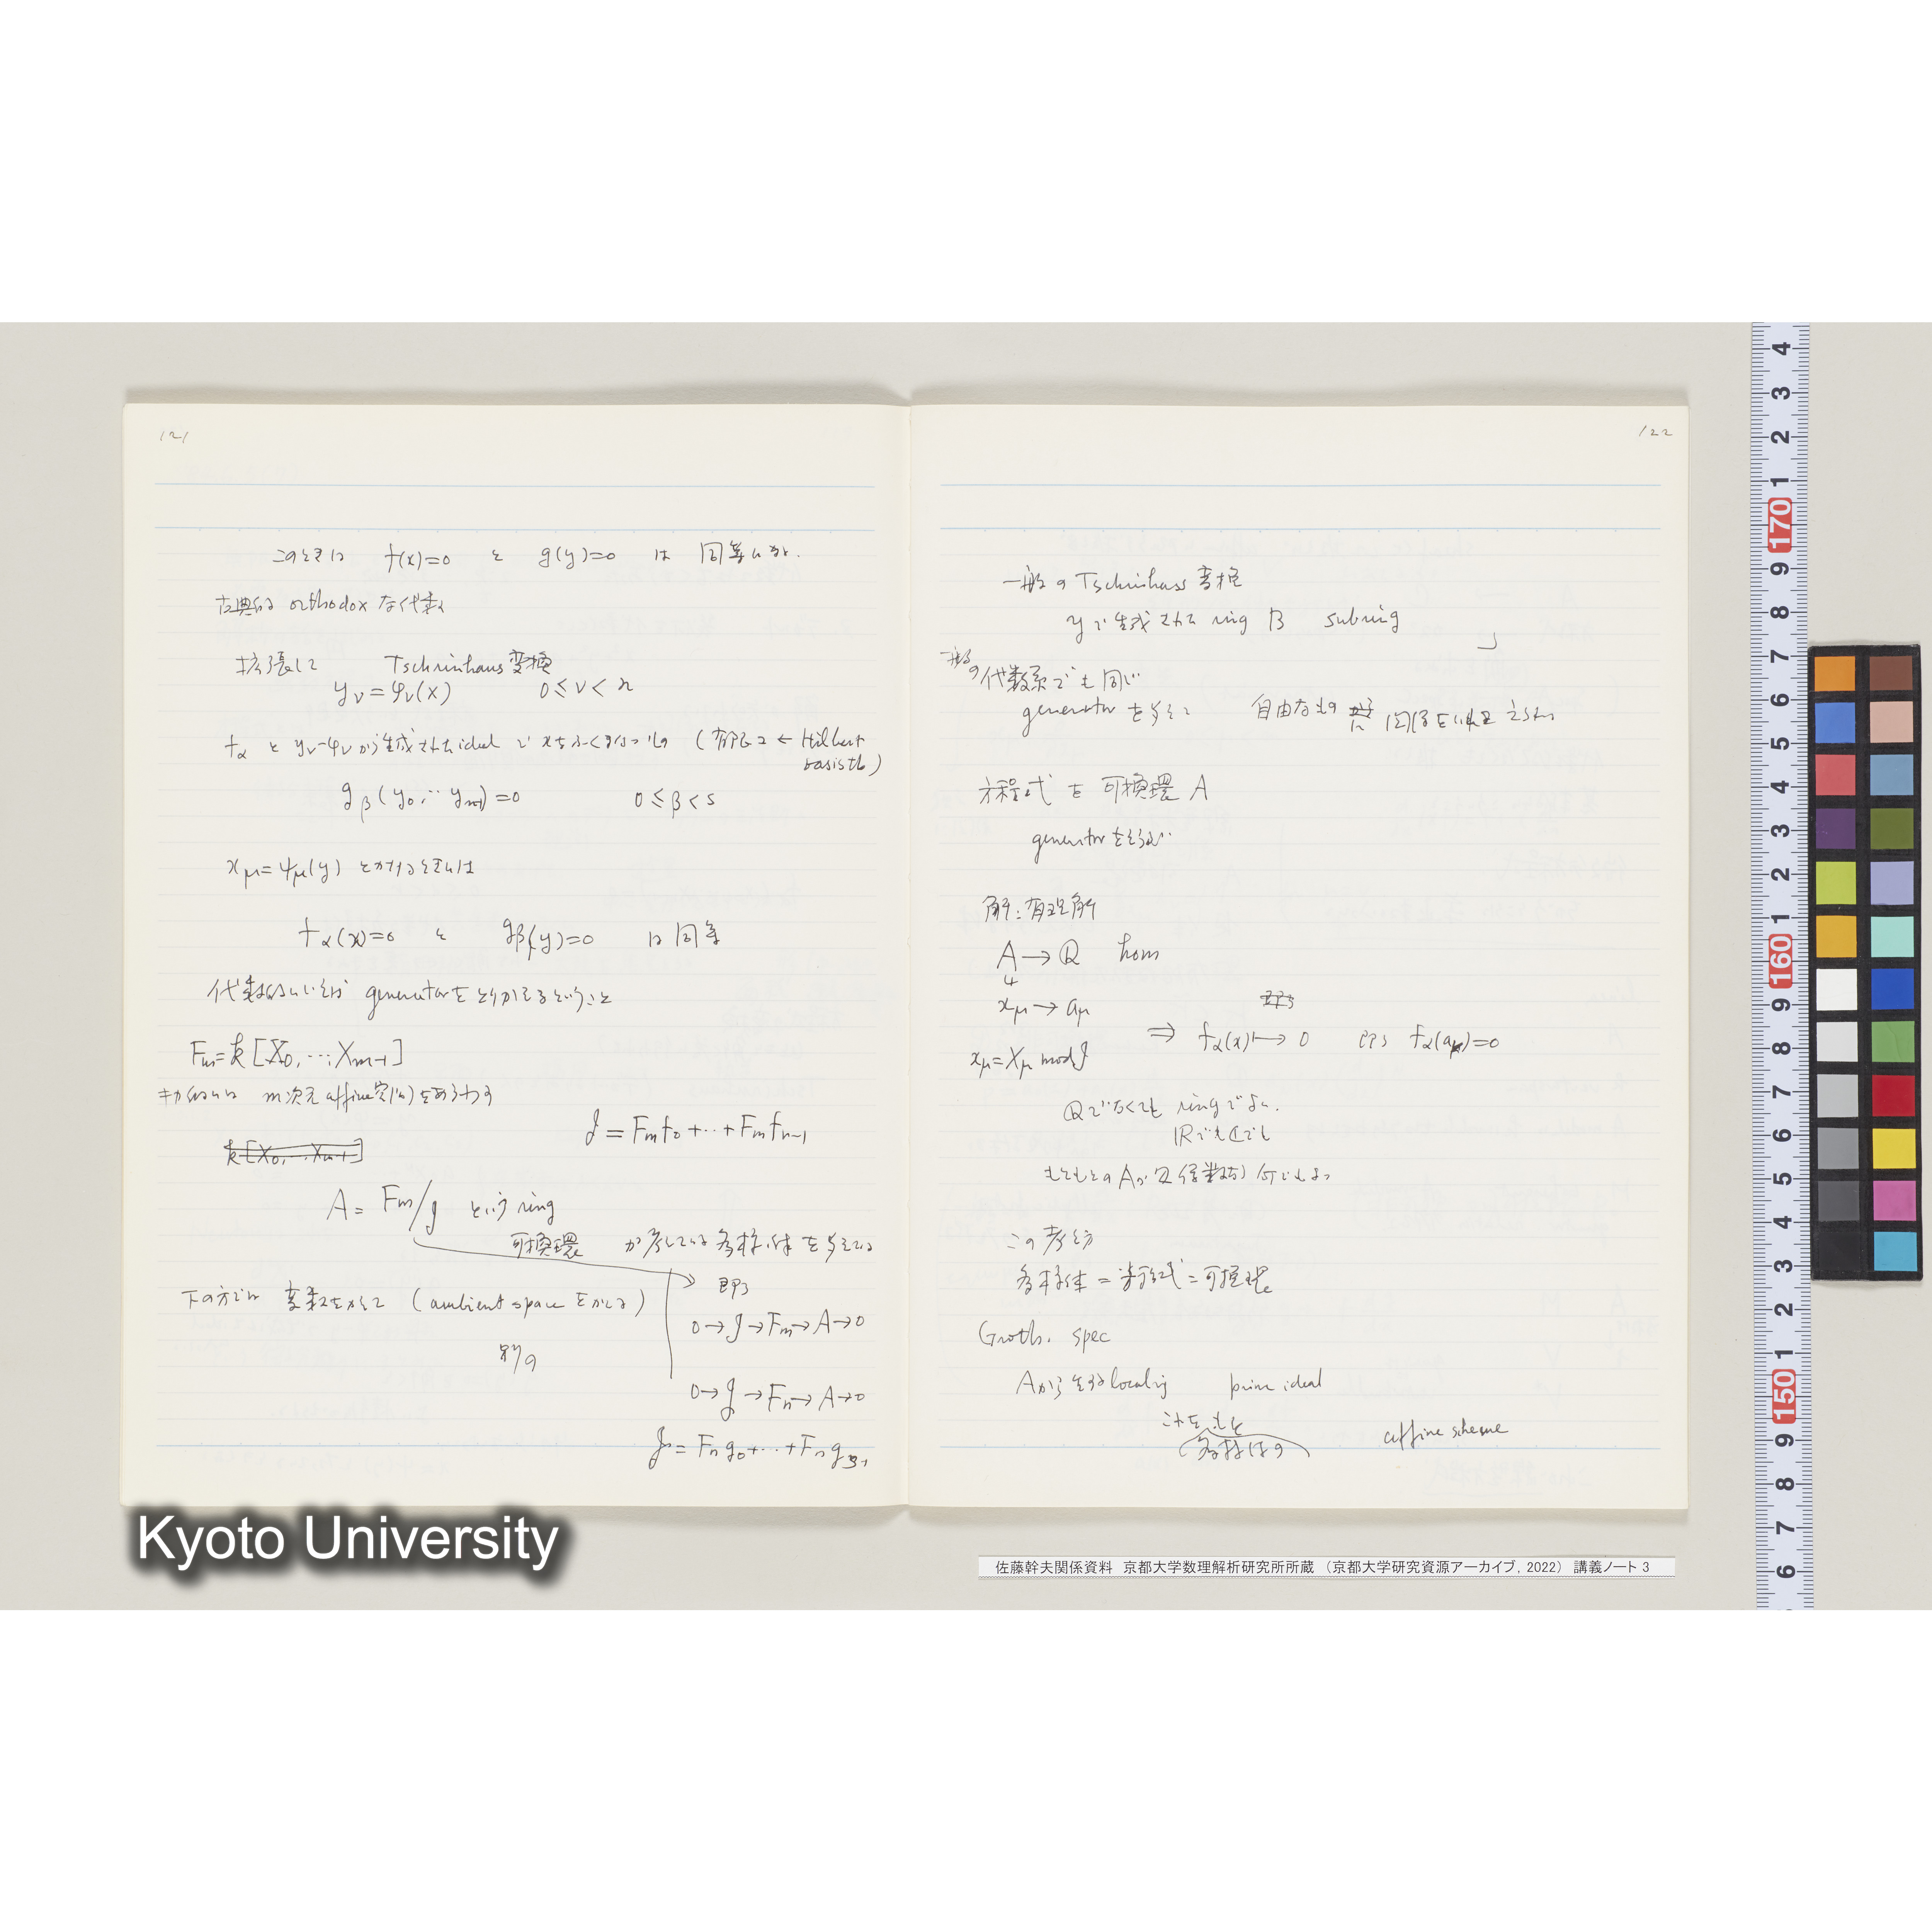 121
このときは f(x)=0 と g(y)=0 は 同等になる.
古典的 orthodox な代数
拡張して Tschrinhaus 変換
y_ν = φ_ν(x) 0 ≤ ν < n
f_α と y_ν-φ_ν から生成された ideal で xをふくまないもの (有限コ ← Hilbert
basis th)
g_β(y_0, … y_{n-1}) = 0 0 ≤ β < s
x_μ = ψ_μ(y) とかけるときは
f_α(x)=0 と g_β(y)=0 は 同等
代数的にいえば generatorを とりかえるということ
F_m = k[X_0, …, X_{m-1}]
m次元 affine空間をあらわす
J = F_m f_0 + … + F_m f_{n-1}
k[X_0, … X_{m-1}]
A = F_m/J という ring
可換環 が考えている多様体を与えている
即ち
下の方では 変数をかえて (ambient space をかえる)
0→J→F_m→A→0
別の
0→J→F_n→A→0
J = F_n g_0 + … + F_n g_{s-1}
122
一般の Tschrinhass 変換
yで生成された ring B subring
一般の代数系でも同じ
generator を与えて 自由なもの に 関係をいれる
方程式 を 可換環 A
generatorをえらぶ
解:有理解
A → Q hom
x_μ → a_μ
⇒ f_α(x) ↦ 0 即ち f_α(a_μ)=0
x_μ = X_μ mod J
Qでなくても ringでよい.
ℝでもℂでも
もともとの Aが Z 係数なら 何でもよい
この考え方
多様体 = 方程式 = 可換環
Groth. spec
Aから生ずるlocal rg prime ideal
これをもと
affine scheme
Kyoto University
佐藤幹夫関係資料 京都大学数理解析研究所所蔵 (京都大学研究資源アーカイブ, 2022) 講義ノート 3
4
3
2
1
170
9
8
7
6
5
4
3
2
1
160
9
8
7
6
5
4
3
2
1
150
9
8
7
6